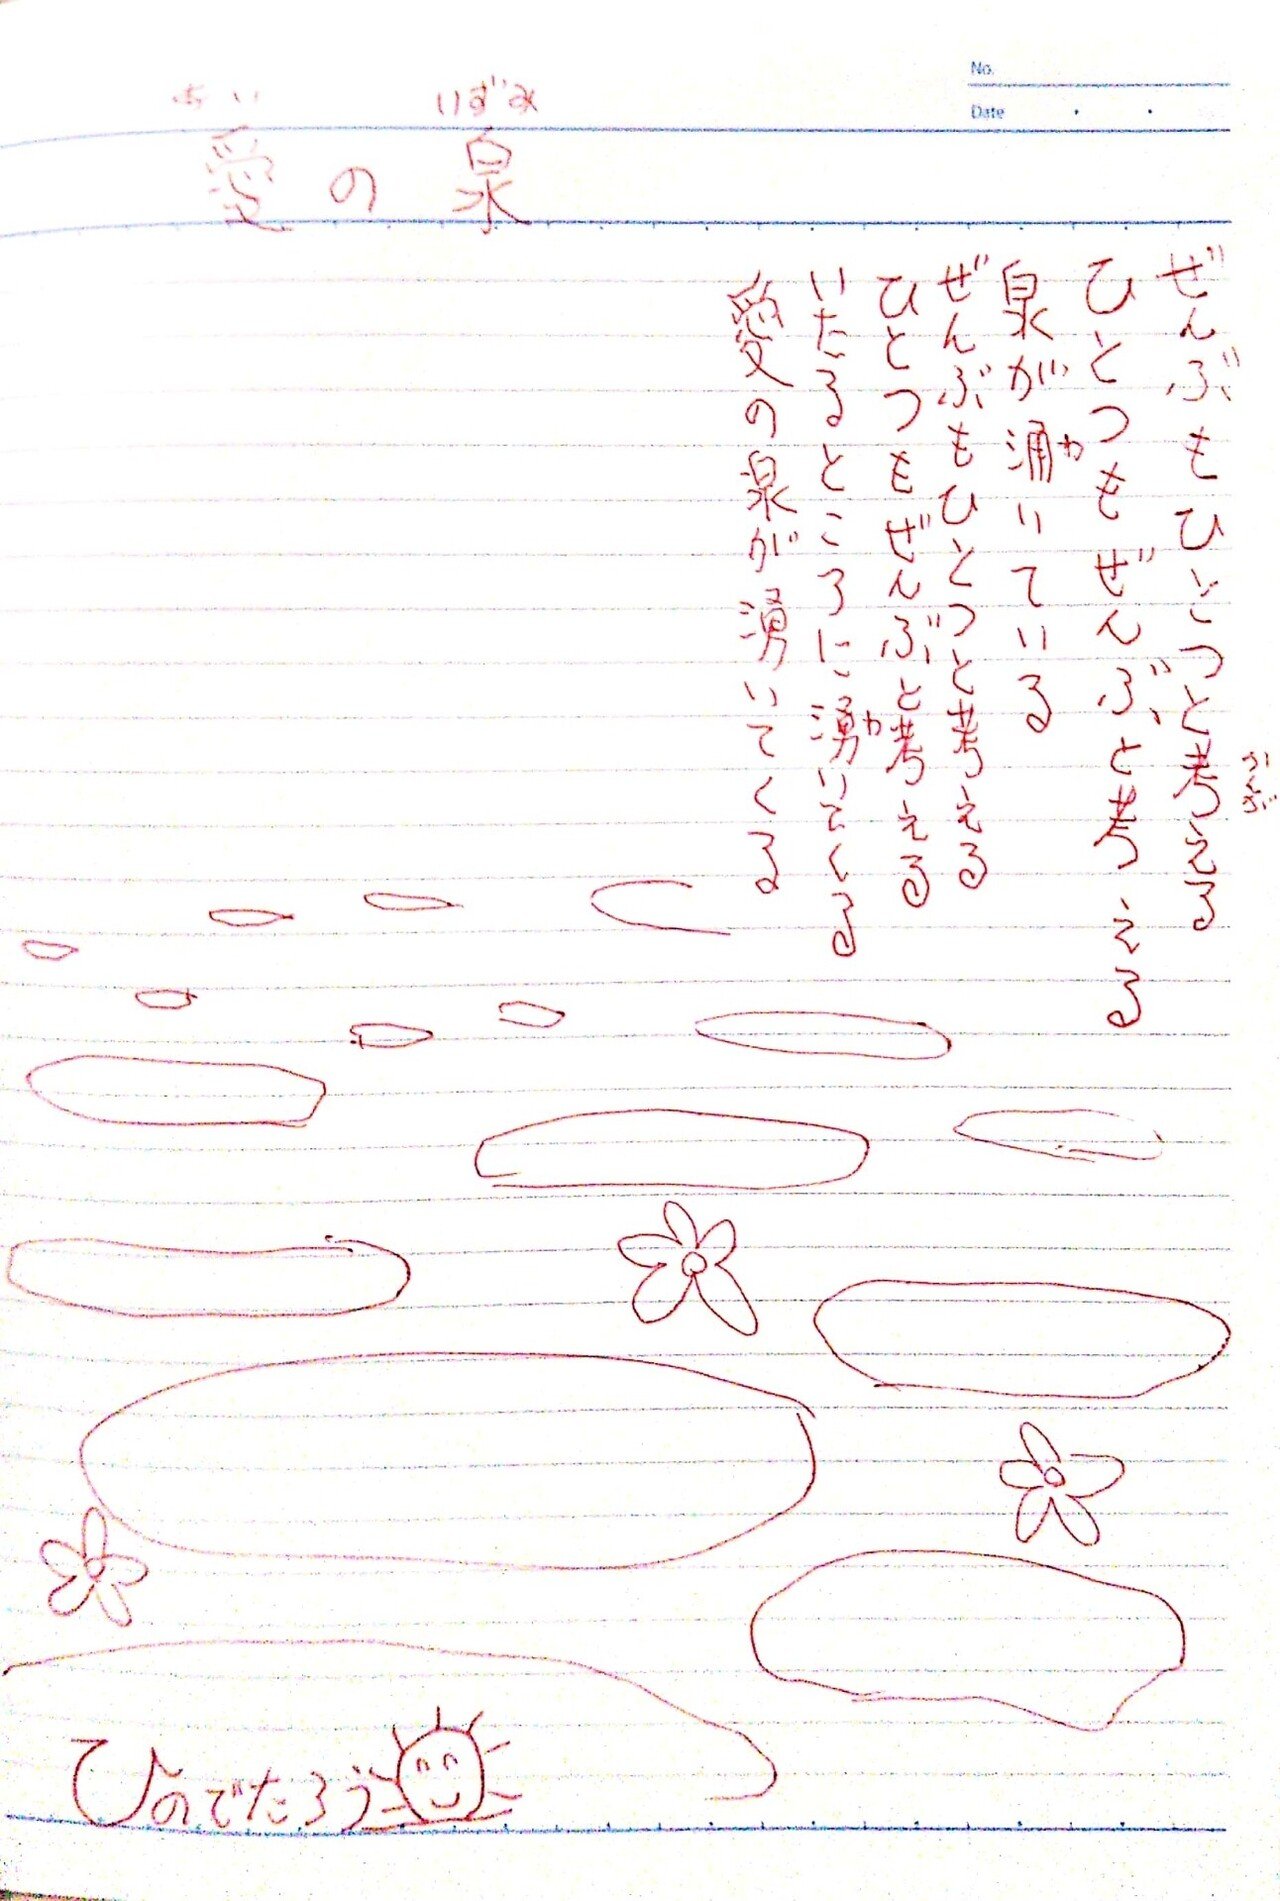 No.
Date
あい　いずみ
愛の泉
ぜんぶもひとつと考える
かんが
ひとつもぜんぶと考える
泉が涌いている
わ
ぜんぶもひとつと考える
ひとつもぜんぶと考える
いたるところに湧いてくる
わ
愛の泉が湧いてくる
ひのでたろう